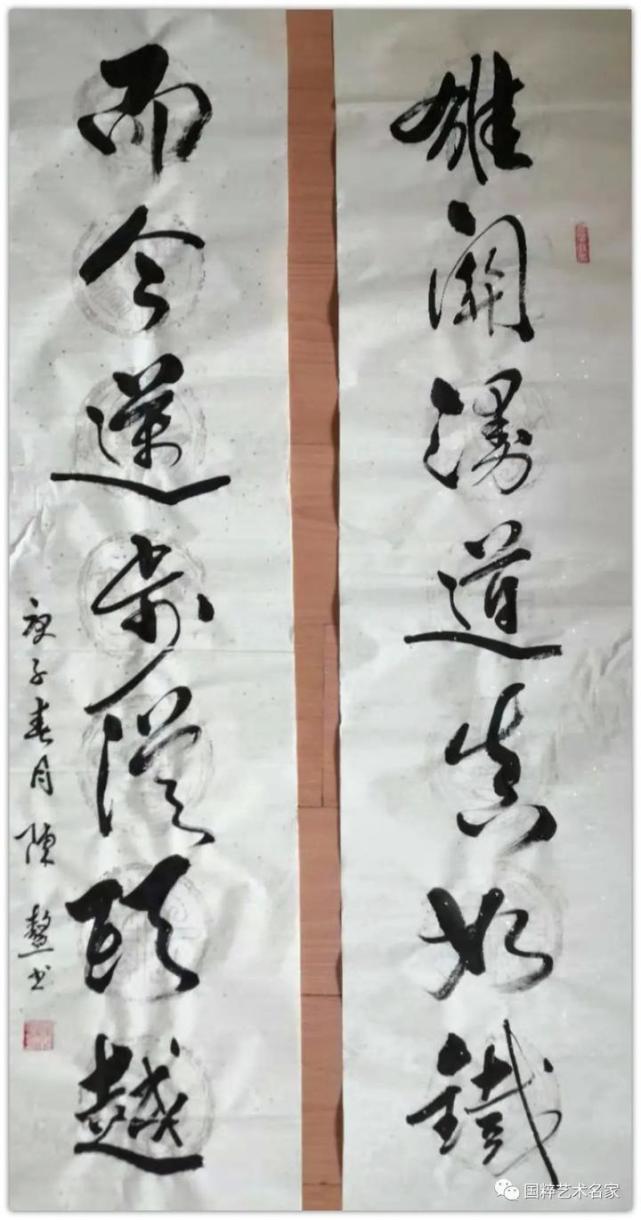 雄關漫道真如鐵
而今邁步從頭越
庚子春月陳鰲書
国粹艺术名家